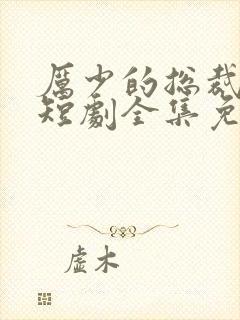 厲少的总裁
短劇全集免
虚木